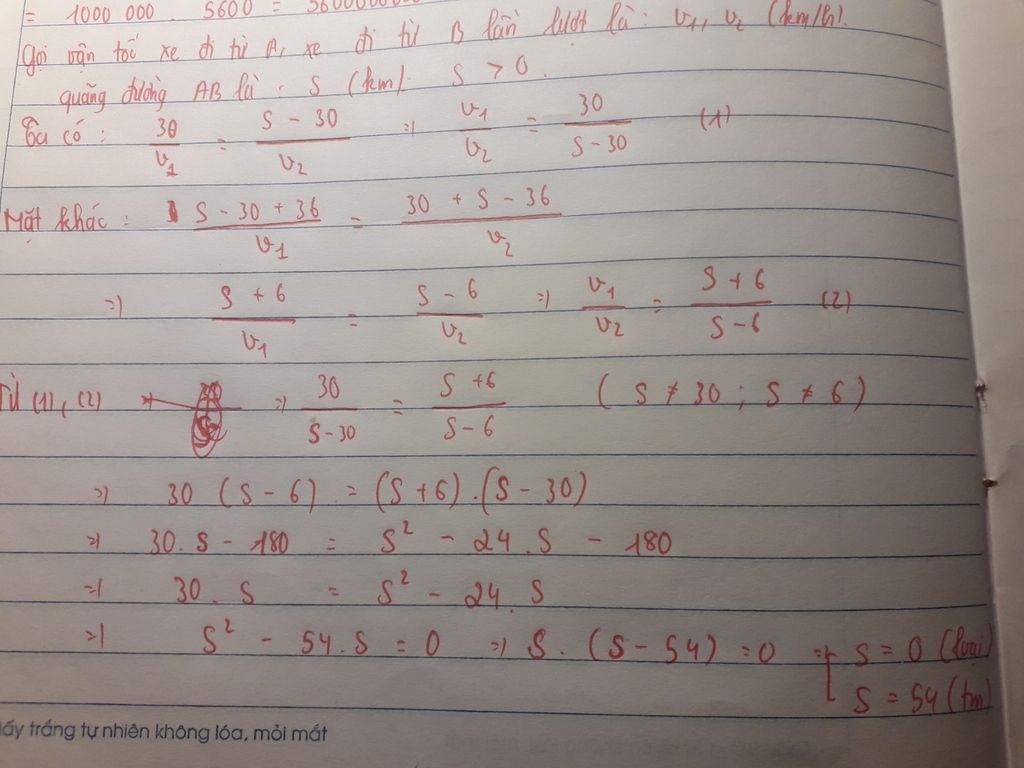 = 1000 000 . 5600 = 5600000000
Gọi vận tốc xe đi từ A, xe đi từ B lần lượt là : v₁, v₂ (km/h).
quãng đường AB là : S (km). S > 0.
Ta có : 30/v₁ = (S - 30)/v₂ => v₁/v₂ = 30/(S - 30) (1)
Mặt khác : (S - 30 + 36)/v₁ = (30 + S - 36)/v₂
=> (S + 6)/v₁ = (S - 6)/v₂ => v₁/v₂ = (S + 6)/(S - 6) (2)
Từ (1), (2) => 30/(S - 30) = (S + 6)/(S - 6) ( S ≠ 30 ; S ≠ 6 )
=> 30 (S - 6) = (S + 6) . (S - 30)
=> 30. S - 180 = S² - 24 . S - 180
=> 30 . S = S² - 24 . S
=> S² - 54. S = 0 => S . (S - 54) = 0 => [ S = 0 (loại)
S = 54 (tm)
ấy trắng tự nhiên không lóa, mỏi mắt